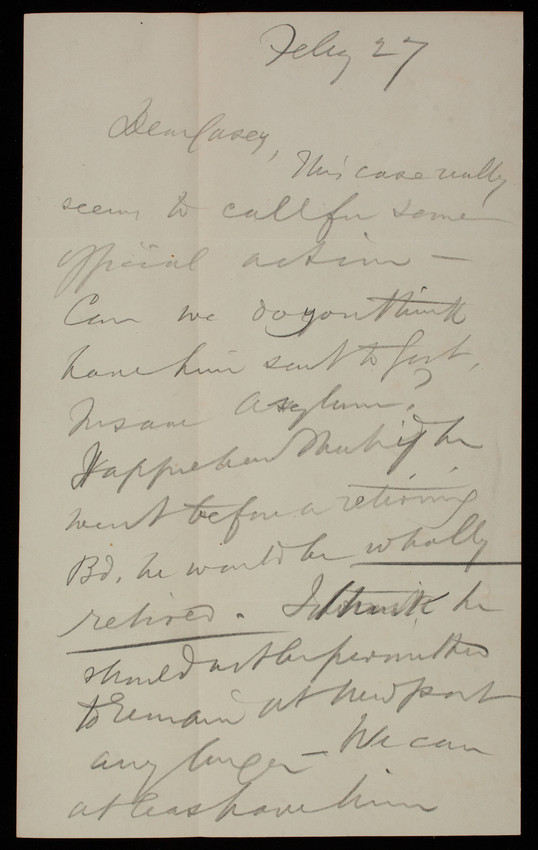 Feby 27
Dear Casey,
This case really
seems to call for some
official action —
Can we do you think
have him sent to Govt.
Insane Asylum?
I apprehend that if he
went before a retiring
Bd. he would be wholly
retired. I think he
should not be permitted
to remain at Newport
any longer — We can
at least have him